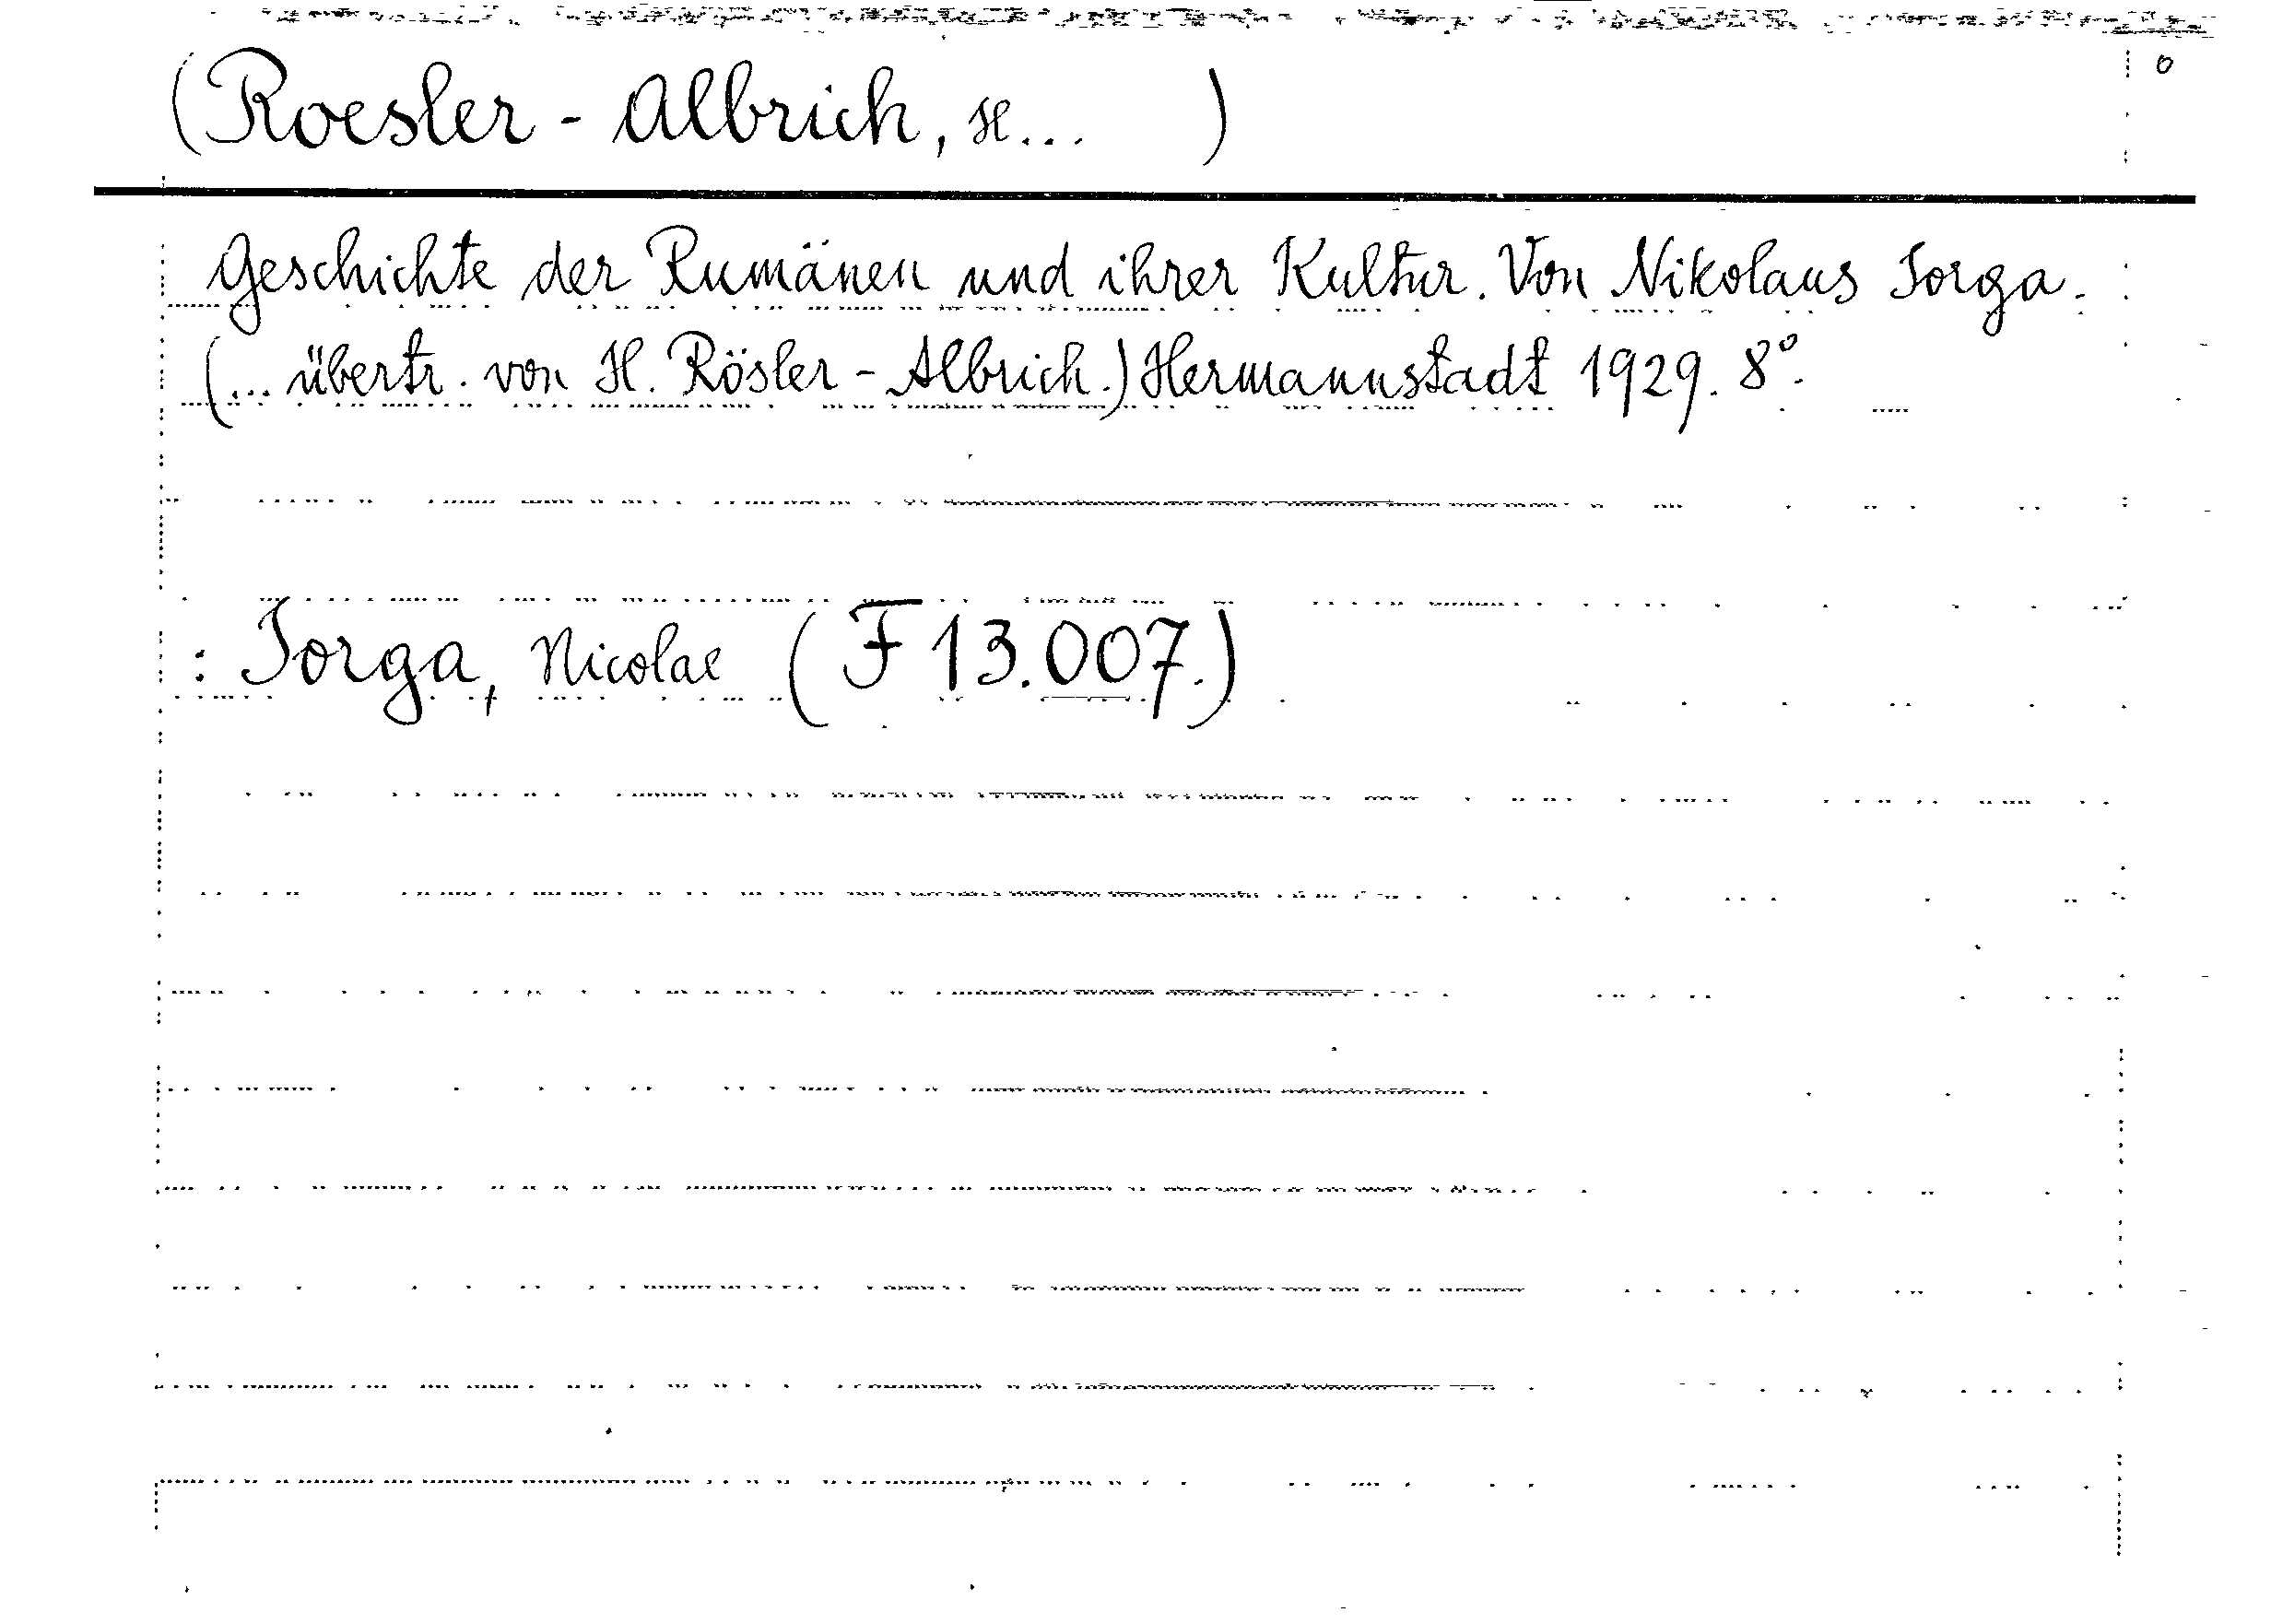 (Roesler-Albrich, H... ) o
Geschichte der Rumänen und ihrer Kultur. Von Nikolaus Jorga.
(... übertr. von H. Rösler-Albrich.) Hermannstadt 1929. 8°.
: Jorga, Nicolae (F 13.007.)